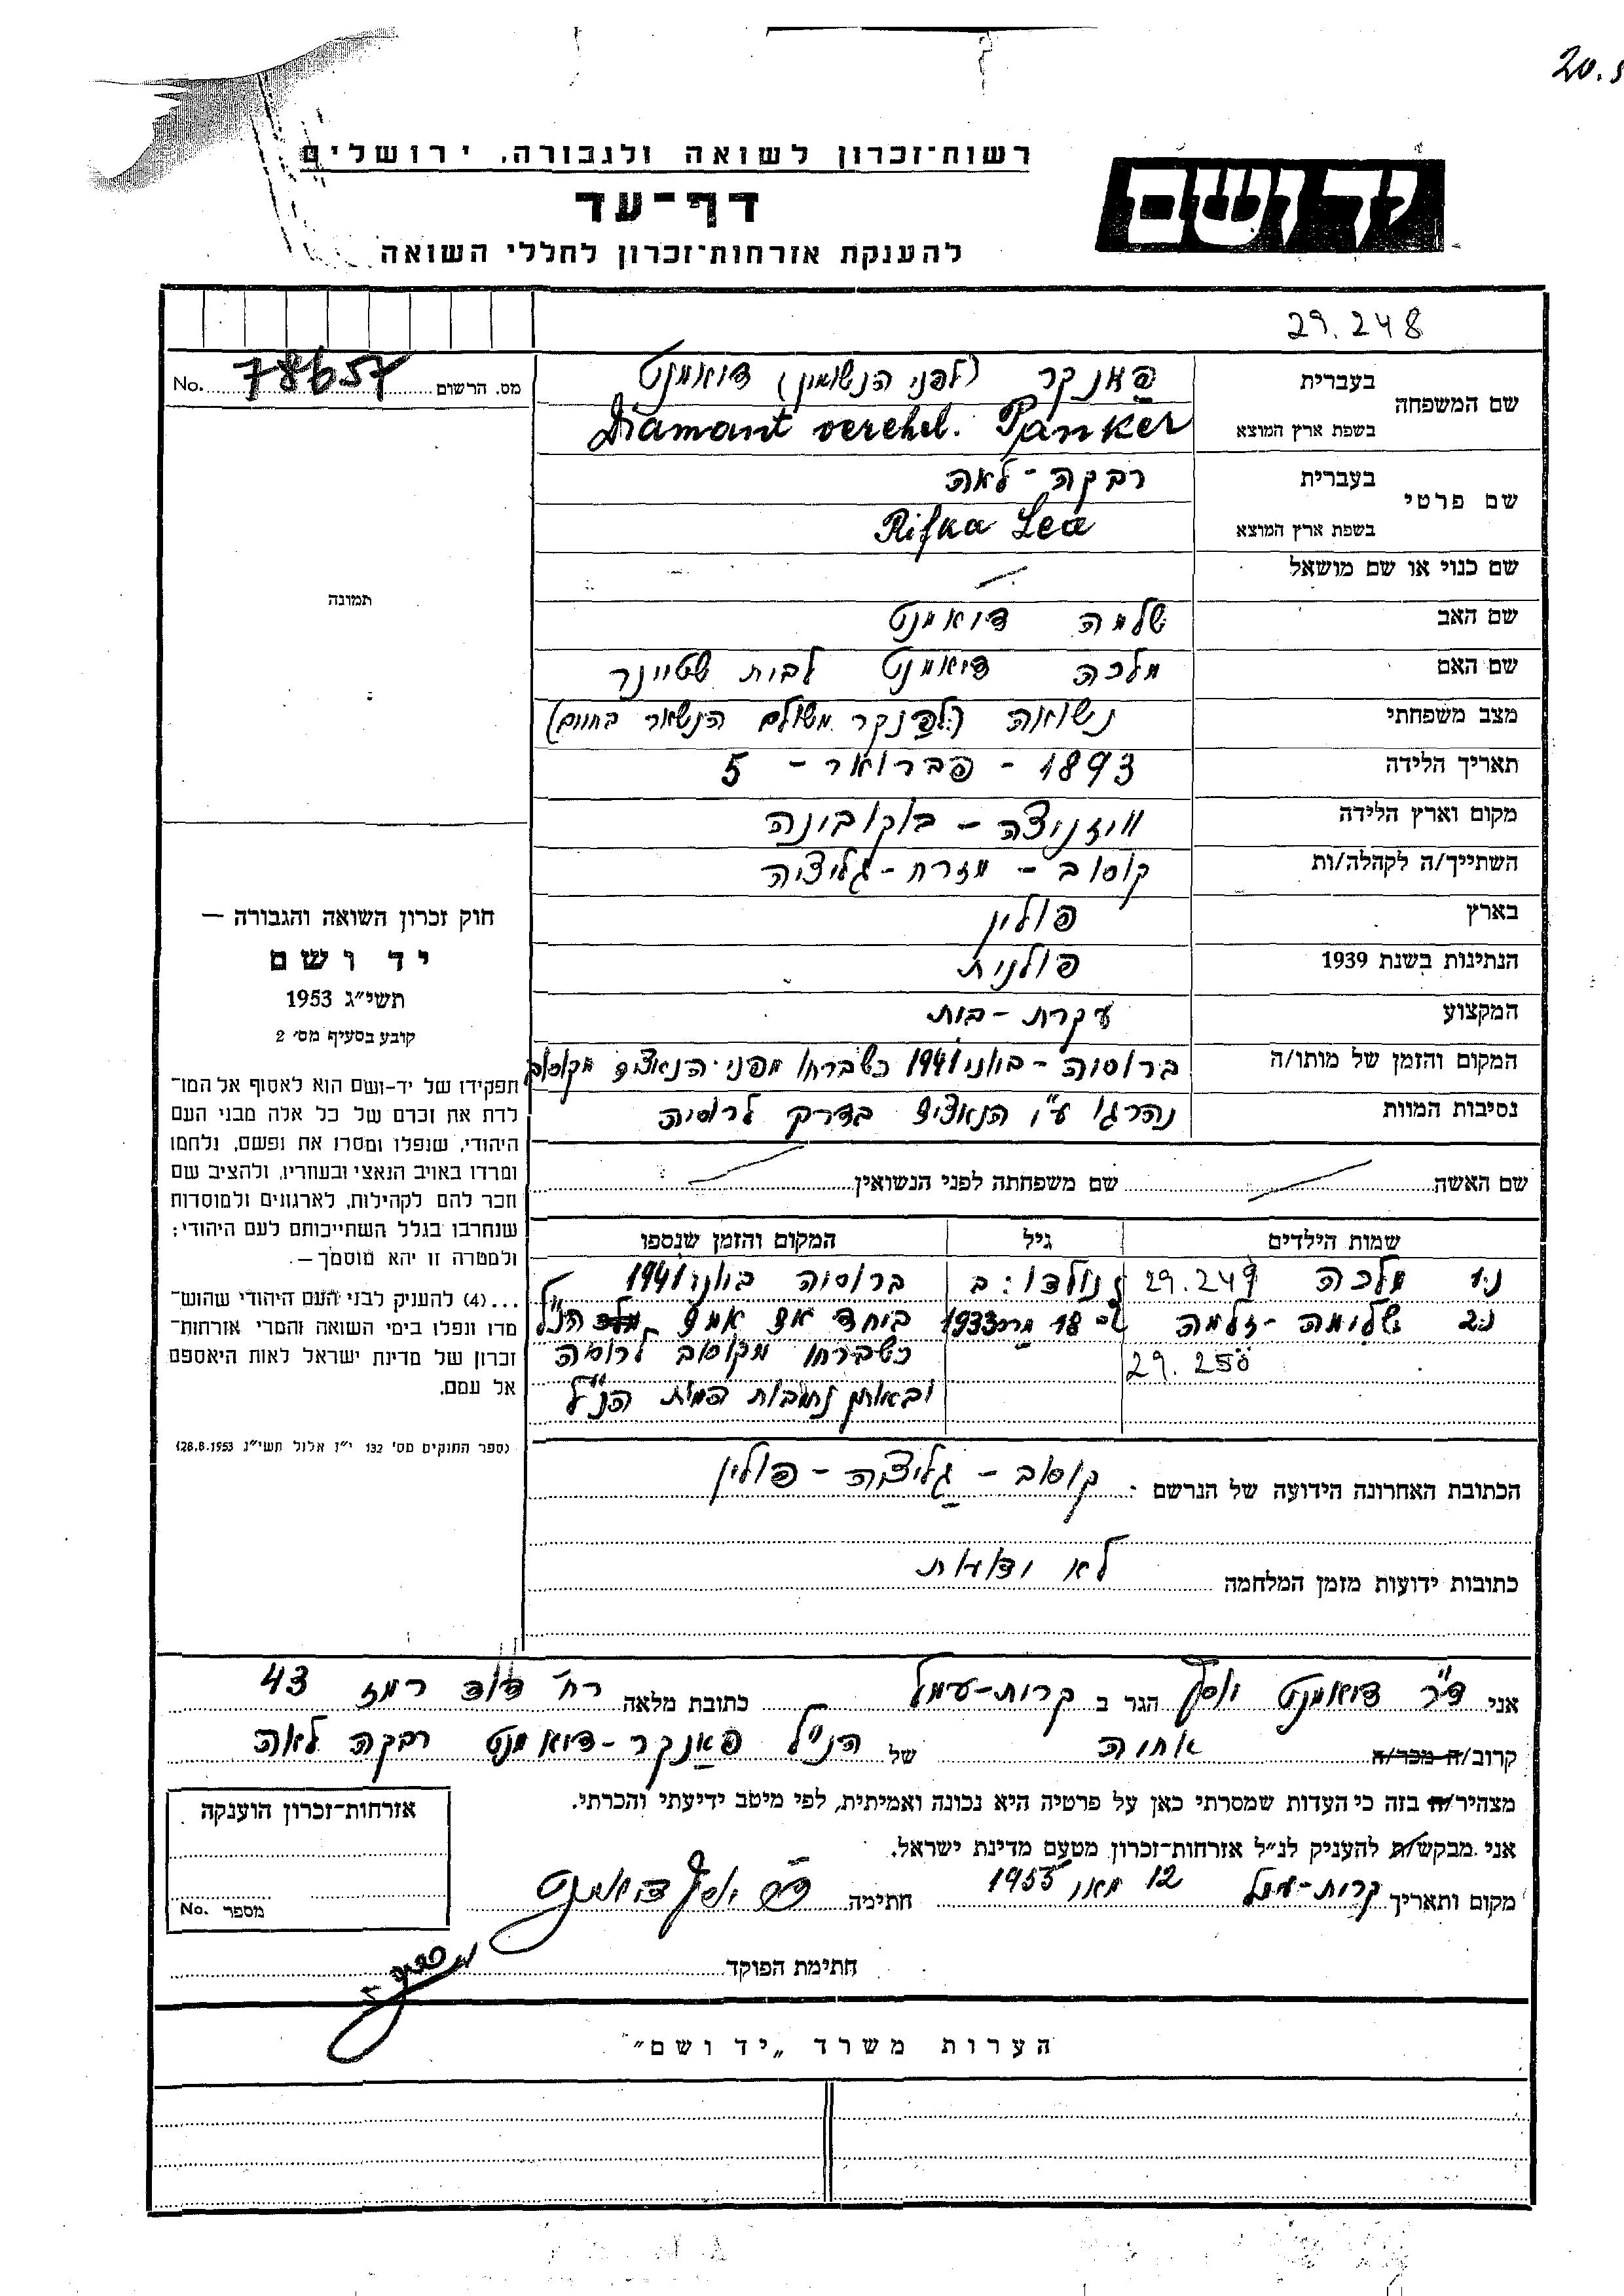 20.
רשות־זכרון לשואה ולגבורה, ירושלים
יד ושם
דף־עד
להענקת אזרחות־זכרון לחללי השואה
29.248
מס. הרשום 78657 No.
שם המשפחה
בעברית פאנקר (לפני הנשואין) דיאמנט
בשפת ארץ המוצא Diamant verehel. Panker
שם פרטי
בעברית רבקה-לאה
בשפת ארץ המוצא Rifka Lea
שם כנוי או שם מושאל —
שם האב שלמה דיאמנט
שם האם מלכה דיאמנט לבית שטיינר
מצב משפחתי נשואה (לפנקר משולם הנשאר בחיים)
תאריך הלידה 5 - פברואר - 1893
מקום וארץ הלידה וויזניצה - בוקובינה
השתייך/ה לקהלה/ות קוסוב - מזרח-גליציה
בארץ פולין
הנתינות בשנת 1939 פולנית
המקצוע עקרת-בית
המקום והזמן של מותו/ה ברוסיה - ביוני 1941 כשברחו מפני הנאצים מקוסוב
נסיבות המוות נהרגו ע"י הנאצים בדרך לרוסיה
שם האשה שם משפחתה לפני הנשואין
שמות הילדים גיל המקום והזמן שנספו
1. מלכה 29.249 נולדו: ב ברוסיה ביוני 1941
2. שלימה-זלמה 18 1933 ביחד עם אמם הנ"ל
29.250 כשברחו מקוסוב לרוסיה
ובאותן נסיבות המות הנ"ל
הכתובת האחרונה הידועה של הנרשם - קוסוב - גליציה - פולין
כתובות ידועות מזמן המלחמה לא ידועות
תמונה
חוק זכרון השואה והגבורה —
יד ושם
תשי״ג 1953
קובע בסעיף מס׳ 2
תפקידו של יד-ושם הוא לאסוף אל המו־
לדת את זכרם של כל אלה מבני העם
היהודי, שנפלו ומסרו את נפשם, נלחמו
ומרדו באויב הנאצי ובעוזריו, ולהציב שם
וזכר להם לקהילות, לארגונים ולמוסדות
שנחרבו בגלל השתייכותם לעם היהודי;
ולמטרה זו יהא מוסמך —.
...(4) להעניק לבני העם היהודי שהוש־
מדו ונפלו בימי השואה והמרי אזרחות־
זכרון של מדינת ישראל לאות היאספם
אל עמם.
(ספר החוקים מס׳ 132 י״ז אלול תשי״ג 28.8.1953)
אני ד"ר דיאמנט יוסף הגר ב קרית-עמל כתובת מלאה רח' דוד רמז 43
קרוב/ה מכר/ה אחיה של הנ"ל פאנקר-דיאמנט רבקה לאה
מצהיר/ה בזה כי העדות שמסרתי כאן על פרטיה היא נכונה ואמיתית, לפי מיטב ידיעתי והכרתי.
אני מבקש/ת להעניק לנ״ל אזרחות־זכרון מטעם מדינת ישראל.
מקום ותאריך קרית-עמל 12 מאי 1955 חתימה ד"ר יוסף דיאמנט
חתימת הפוקד
אזרחות־זכרון הוענקה
מספר No.
הערות משרד „יד ושם"